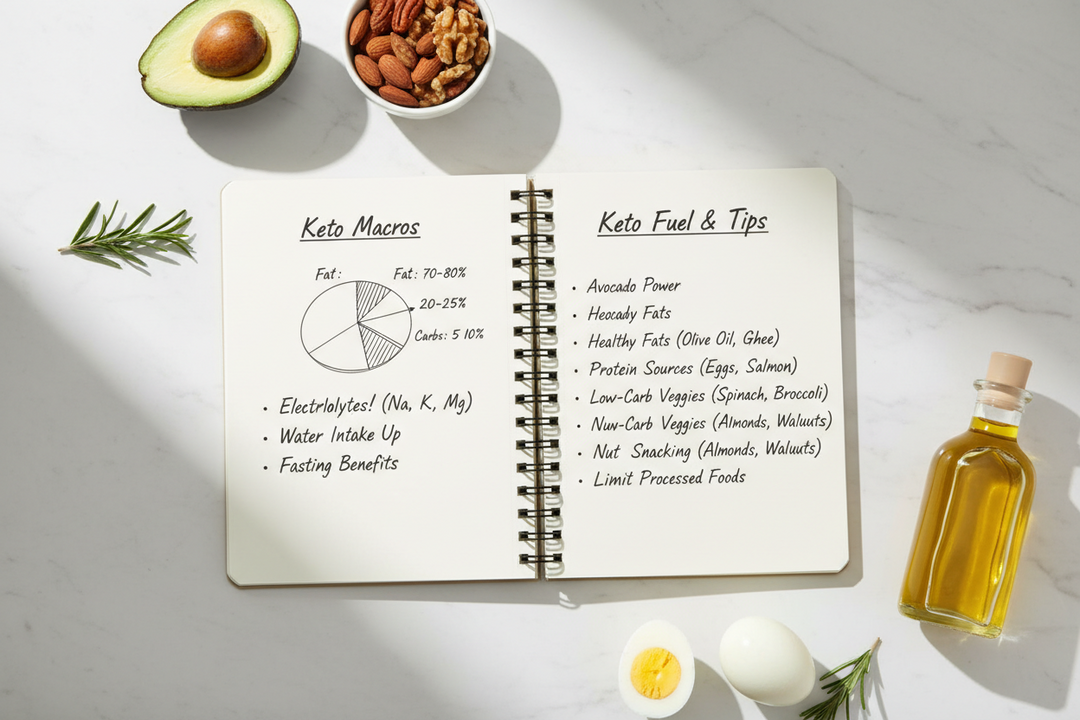 Keto Macros
Fat:
Fat: 70-80%
20-25%
Carbs: 5 10%
Electrlolytes! (Na, K, Mg)
Water Intake Up
Fasting Benefits
Keto Fuel & Tips
Avocado Power
Heocady Fats
Healthy Fats (Olive Oil, Ghee)
Protein Sources (Eggs, Salmon)
Low-Carb Veggies (Spinach, Broccoli)
Nuw-Carb Veggies (Almonds, Waluuts)
Nut Snacking (Almonds, Waluuts)
Limit Processed Foods